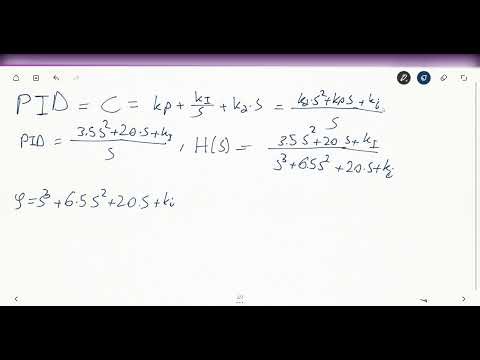 PID = C = kp + kI/s + kd.s = (kd.s²+kps+ki)/s
PID = (3.5s²+20.s+kI)/s , H(s) = (3.5s²+20s+kI)/(s³+6.5s²+20.s+ki)
φ=s³+6.5s²+20.s+ki